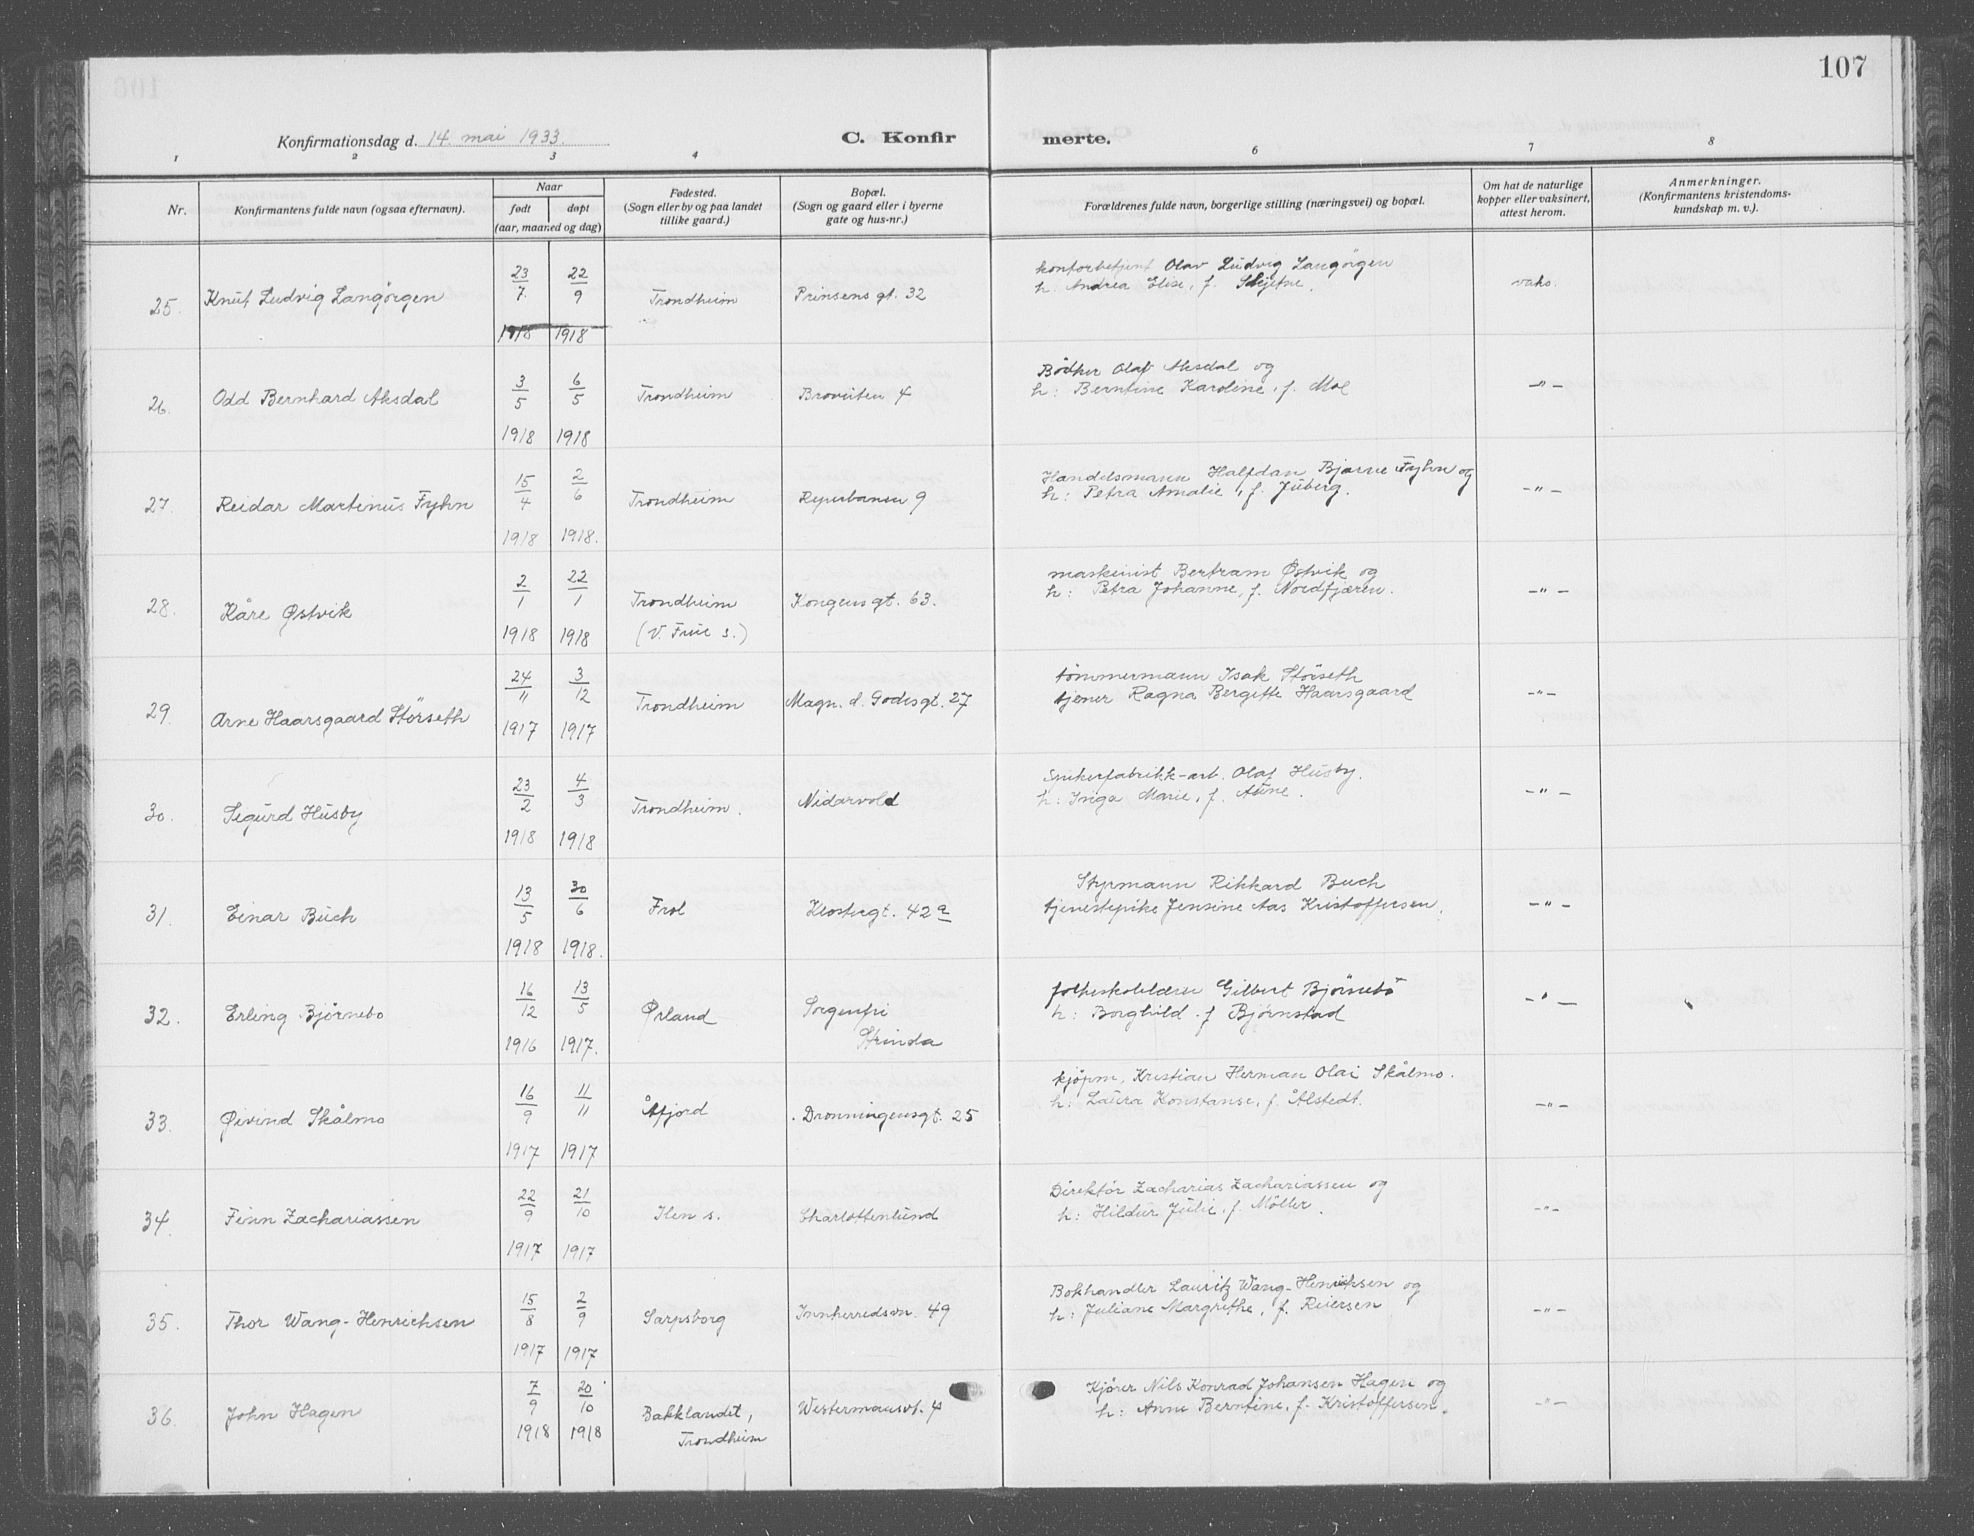 107
Konfirmationsdag d. 14. mai 1933.
C. Konfir
merte.
1 2 3 4 6 7 8
Nr.
Konfirmantens fulde navn (ogsaa efternavn).
Naar
født døpt
(aar, maaned og dag)
Fødested.
(Sogn eller by og paa landet
tillike gaard.)
Bopæl.
(Sogn og gaard eller i byerne
gate og hus-nr.)
Forældrenes fulde navn, borgerlige stilling (næringsvei) og bopæl.
Om hat de naturlige
kopper eller vaksinert,
attest herom.
Anmerkninger.
(Konfirmantens kristendoms-
kundskap m. v.).
25. Knut Ludvig Langörgen 23/7. 1918 22/9 1918 Trondheim Prinsens gt. 32
kontorbetjent Olav Ludvig Langörgen
h. Andrea Elise, f. Skjetne. vaks.
26. Odd Bernhard Aksdal 3/5 1918 6/5 1918 Trondheim Broruten 4
Bödker Olaf Aksdal og
h: Berntine Karoline, f. Moe -"-
27. Reidar Martinus Fyhn 15/4 1918 2/6 1918. Trondheim Reperbanen 9
Handelsmann Halfdan Bjarne Fyhn og
h: Petra Amalie, f. Juberg. -"-
28. Kåre Østvik 2/1 1918 22/1 1918 Trondheim Kongens gt. 63.
(V. Frue s.)
maskinist Bertram Østvik og
h: Petra Johanne, f. Nordfjæren. -"-
29. Arne Haarsgaard Störseth 24/11 1917 3/12 1917 Trondheim Magn. d. Godesgt. 27
tömmermann Isak Störseth
tjener Ragna Bergitte Haarsgaard -"-
30. Sigurd Husby 23/2 1918 4/3 1918 Trondheim. Nidarvold
Spikerfabrikk-arb. Olaf Husby.
h: Inga Marie, f. Aune. -"-
31. Einar Buch 13/5 1918 30/6 1918. Frol Klostergt. 42 a
Styrmann Rikkard Buch
tjenestepike Jensine Aas Kristoffersen. -"-
32. Erling Bjørnebo 16/12 1916 13/5 1917. Ørland Sorgenfri
Strinda
folkeskolelærer Gilbert Bjørnebö
h: Borghild. f Bjørnstad -"-
33. Øivind Skålmo 16/9 1917 11/11 1917 Åfjord Dronningensgt. 25
kjöpm. Kristian Herman Olai Skålmo.
h: Laura Konstanse, f. Ålstedt. -"-
34. Finn Zachariassen 22/9 1917 21/10 1917 Ilen s. Charlottenlund
Direktör Zacharias Zachariassen og
h: Hildur Julie. f. Möller. -"-
35. Thor Wang-Henrichsen 15/8 1917 2/9 1917 Sarpsborg Innherredsvn. 49
Bokhandler Lauritz Wang-Henrichsen og
h: Juliane Margrethe, f. Reiersen -"-
36. John Hagen 7/9 1918 20/10 1918 Bakklandet, Westermansvt. 4
Trondheim
Kjörer Nils Konrad Johansen Hagen og
h: Anne Berntine, f. Kristoffersen. -"-